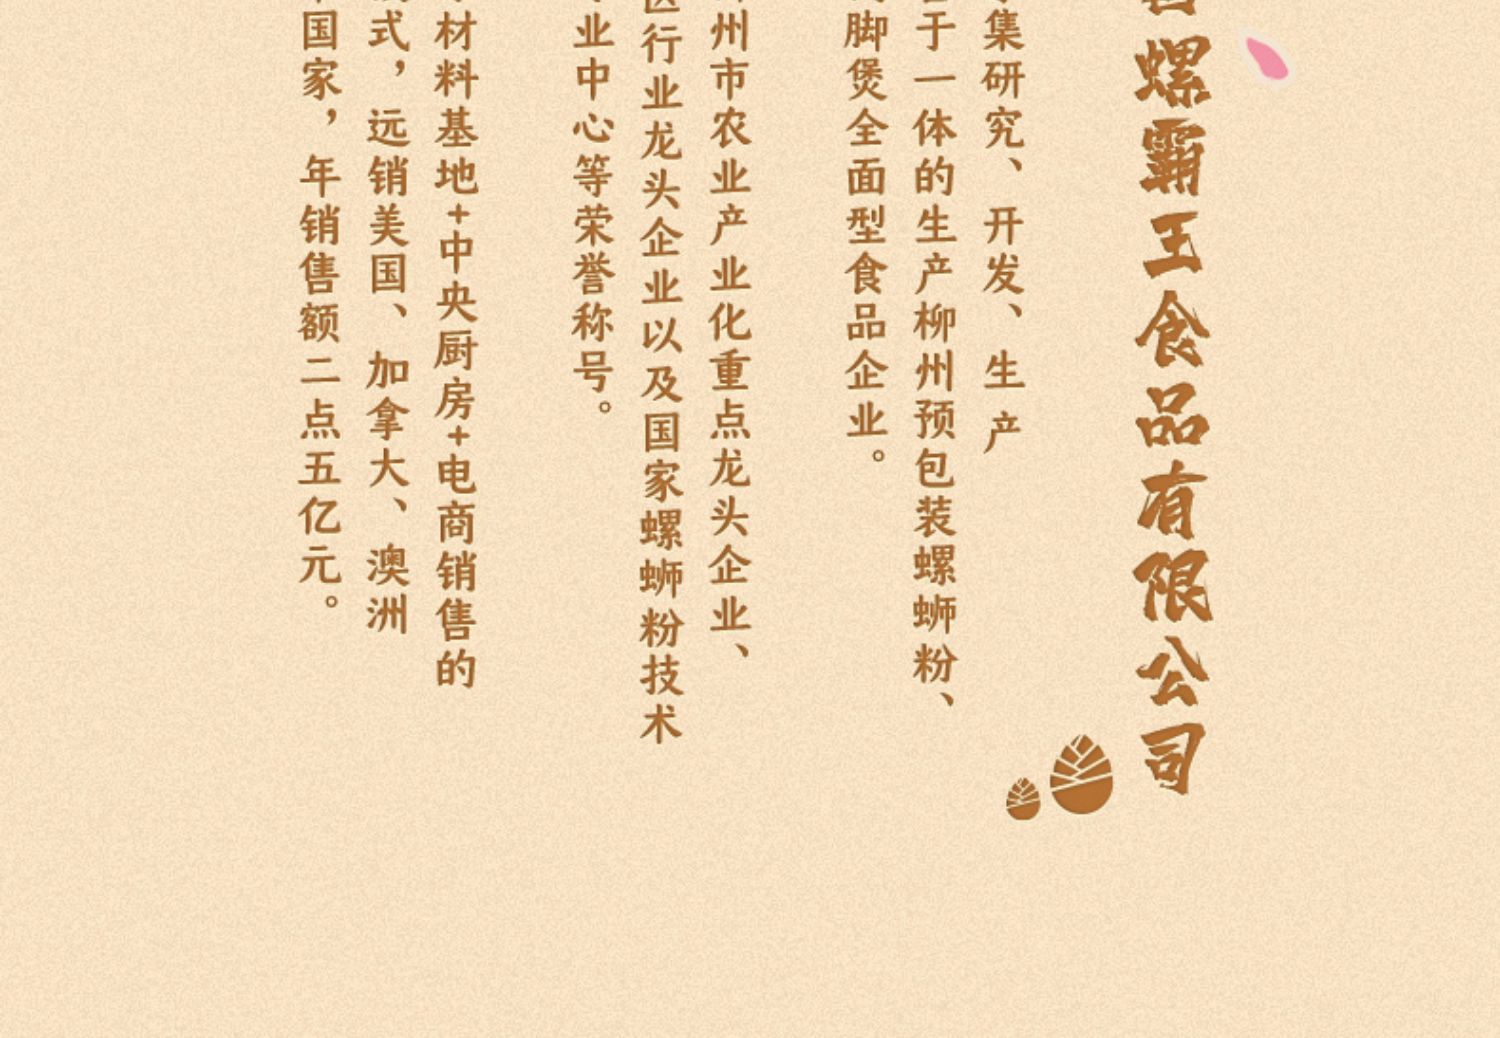 螺霸王食品有限公司
集研究、开发、生产
于一体的生产柳州预包装螺蛳粉、
脚煲全面型食品企业。
州市农业产业化重点龙头企业、
行业龙头企业以及国家螺蛳粉技术
业中心等荣誉称号。
材料基地+中央厨房+电商销售的
式，远销美国、加拿大、澳洲
国家，年销售额二点五亿元。